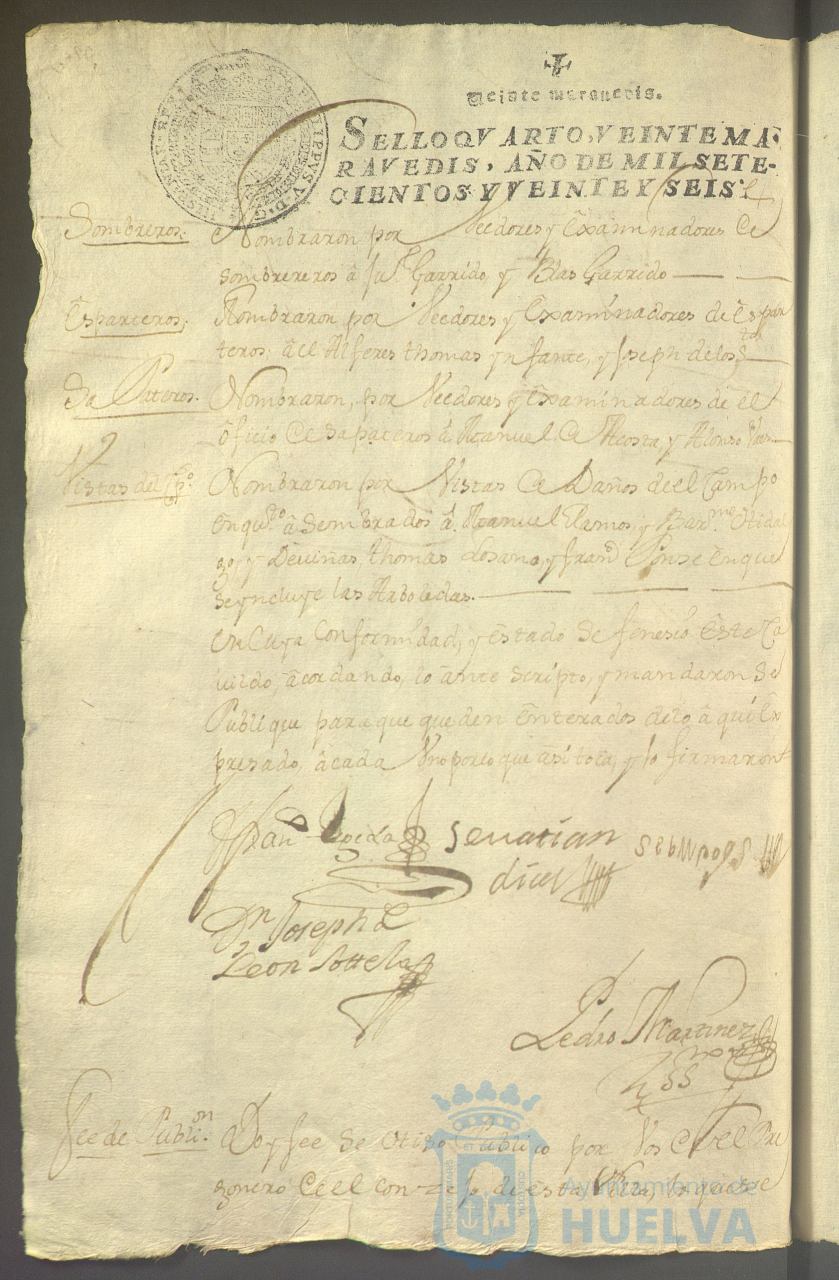 Veinte maravedis.
SELLO QVARTO, VEINTE MA-
RAVEDIS, AÑO DE MIL SETE-
CIENTOS Y VEINTE Y SEIS.
Sombreros. Nombraron por Veedores y Examinadores de
sombrereros â Ju.º Garrido y Blas Garrido
Esparteros; Nombraron por Veedores y Examinadores de Espar
teros; â el Alferes thomas ynfante, y Joseph de los S.tos
Sapateros. Nombraron, por Veedores y Examinadores de el
oficio de sapateros â Manuel de Acosta, y Alonso
Vistas del Cpº Nombraron por Vistas de Daños de el Campo
enquº â sembrados â Manuel Ramos y Bar.me
y De viñas, thomas Losano, y Fran.co Ponse enque
se yncluye las Arboledas.
en Cuya Conformidad, y estado se fenesio este Ca
uildo, âcordando, lo ânte scripto, y mandaron se
Publique para que queden enterados delo â qui Ex
presado, âcada Vno porlo que asi toca, y lo firmaron
Seuastian
dias
Dn Joseph de
Leon Sottelo
Pedro Martinez
ssno
Fee de Publi.on Doy fee se Publico por Vos de el Pre
gonero de el consejo de esta Villa, lo que se
Ayuntamiento de
HUELVA